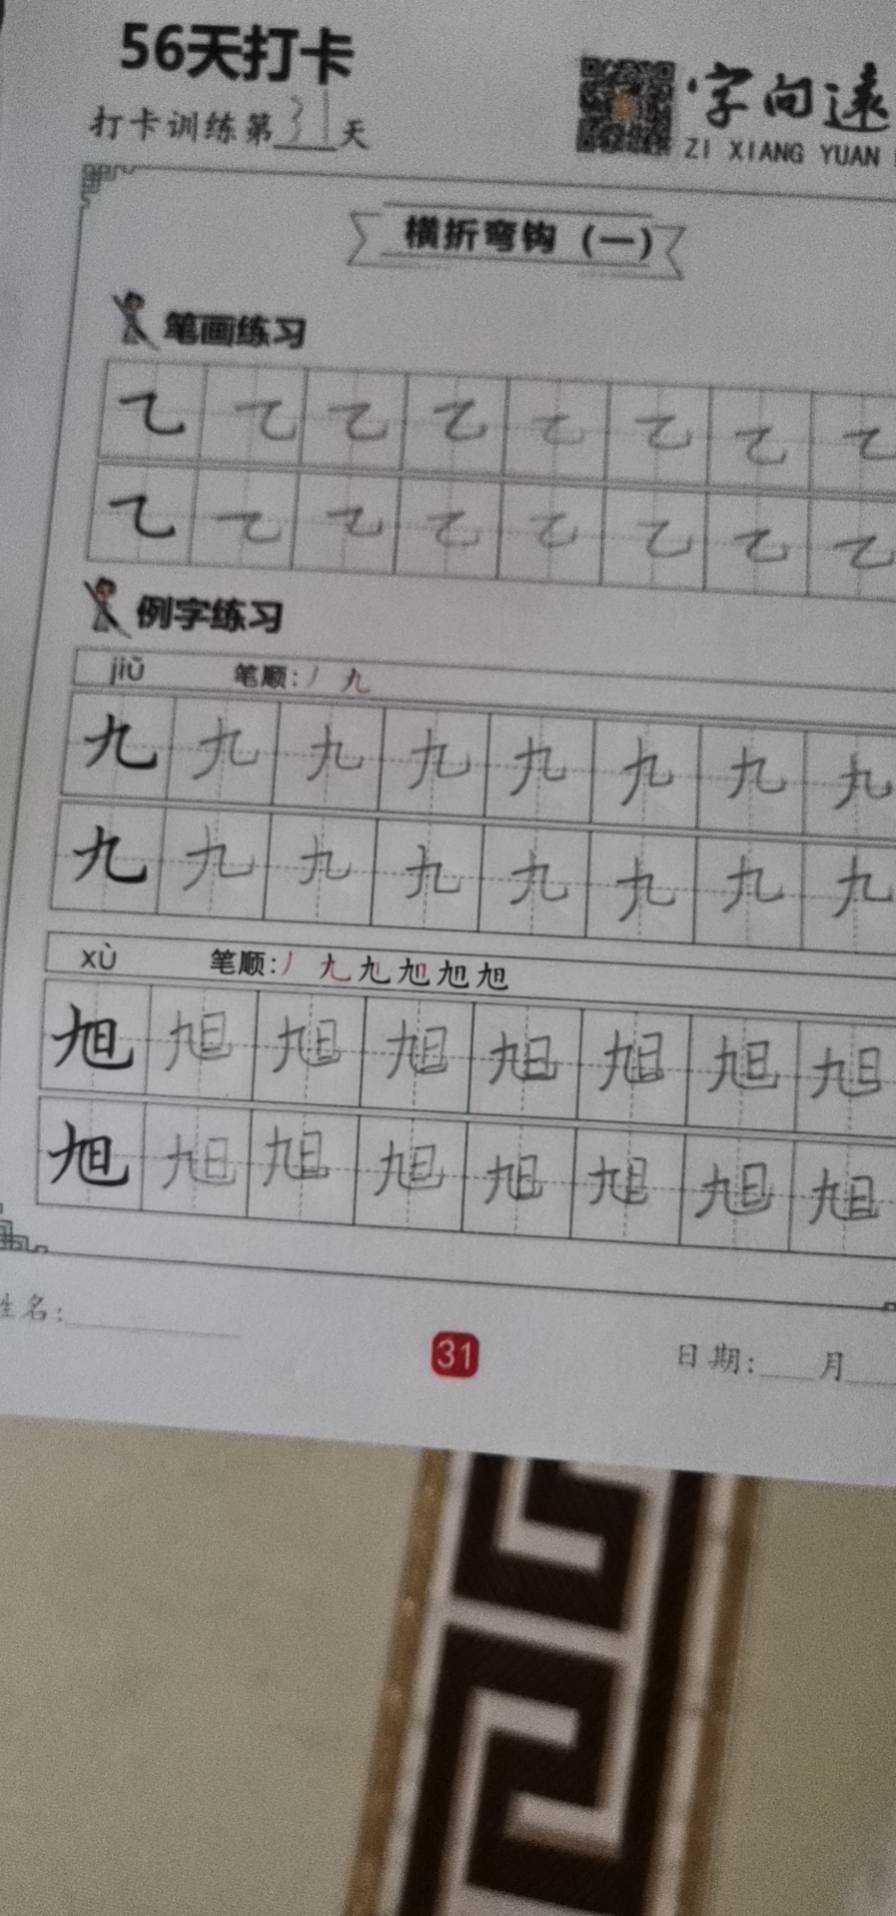 56天打卡
打卡训练第31天
字向远
ZI XIANG YUAN
横折弯钩（一）
笔画练习
㇈ ㇈ ㇈ ㇈ ㇈ ㇈ ㇈ ㇈
㇈ ㇈ ㇈ ㇈ ㇈ ㇈ ㇈ ㇈
例字练习
jiǔ 笔顺:丿 九
九 九 九 九 九 九 九 九
九 九 九 九 九 九 九 九
xù 笔顺:丿 九 九 旭 旭 旭
旭 旭 旭 旭 旭 旭 旭 旭
旭 旭 旭 旭 旭 旭 旭 旭
姓名:
31
日期: 月